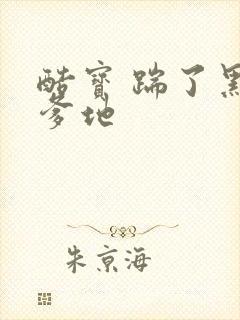 酷寶踹了黑
爹地
朱京海